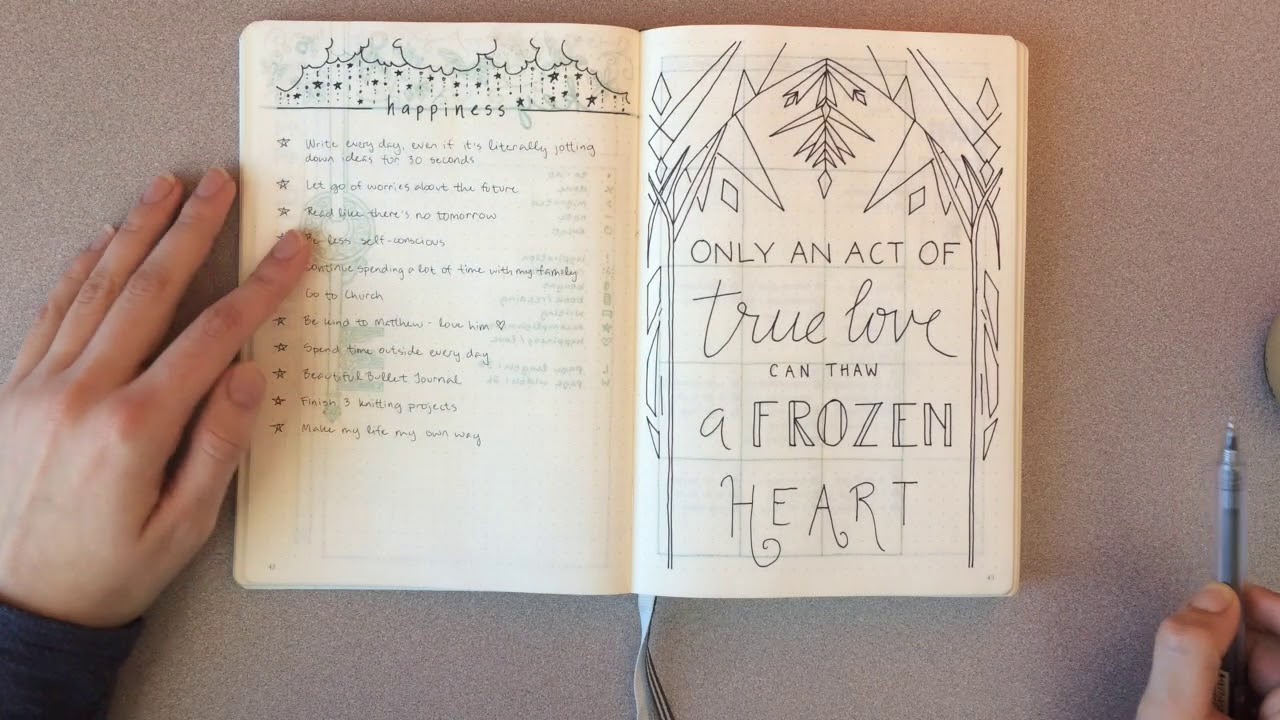 happiness
Write every day, even if it's literally jotting
down ideas for 30 seconds
Let go of worries about the future
Read like there's no tomorrow
Be less self-conscious
Continue spending a lot of time with my family
Go to Church
Be kind to Matthew - love him ♡
Spend time outside every day
Beautiful Bullet Journal
Finish 3 knitting projects
Make my life my own way
ONLY AN ACT OF
true love
CAN THAW
a FROZEN
HEART
43